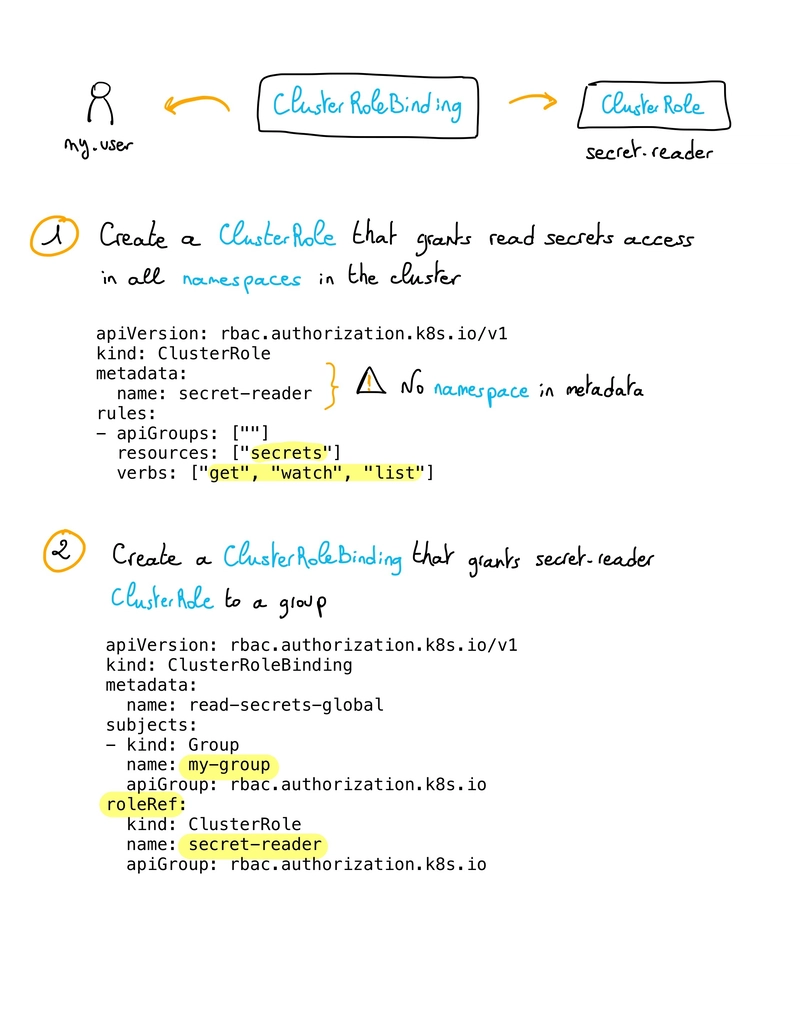 ClusterRoleBinding
ClusterRole
my.user
secret.reader
1 Create a ClusterRole that grants read secrets access
in all namespaces in the cluster
apiVersion: rbac.authorization.k8s.io/v1
kind: ClusterRole
metadata:
  name: secret-reader
⚠ No namespace in metadata
rules:
- apiGroups: [""]
  resources: ["secrets"]
  verbs: ["get", "watch", "list"]
2 Create a ClusterRoleBinding that grants secret-reader
ClusterRole to a group
apiVersion: rbac.authorization.k8s.io/v1
kind: ClusterRoleBinding
metadata:
  name: read-secrets-global
subjects:
- kind: Group
  name: my-group
  apiGroup: rbac.authorization.k8s.io
roleRef:
  kind: ClusterRole
  name: secret-reader
  apiGroup: rbac.authorization.k8s.io